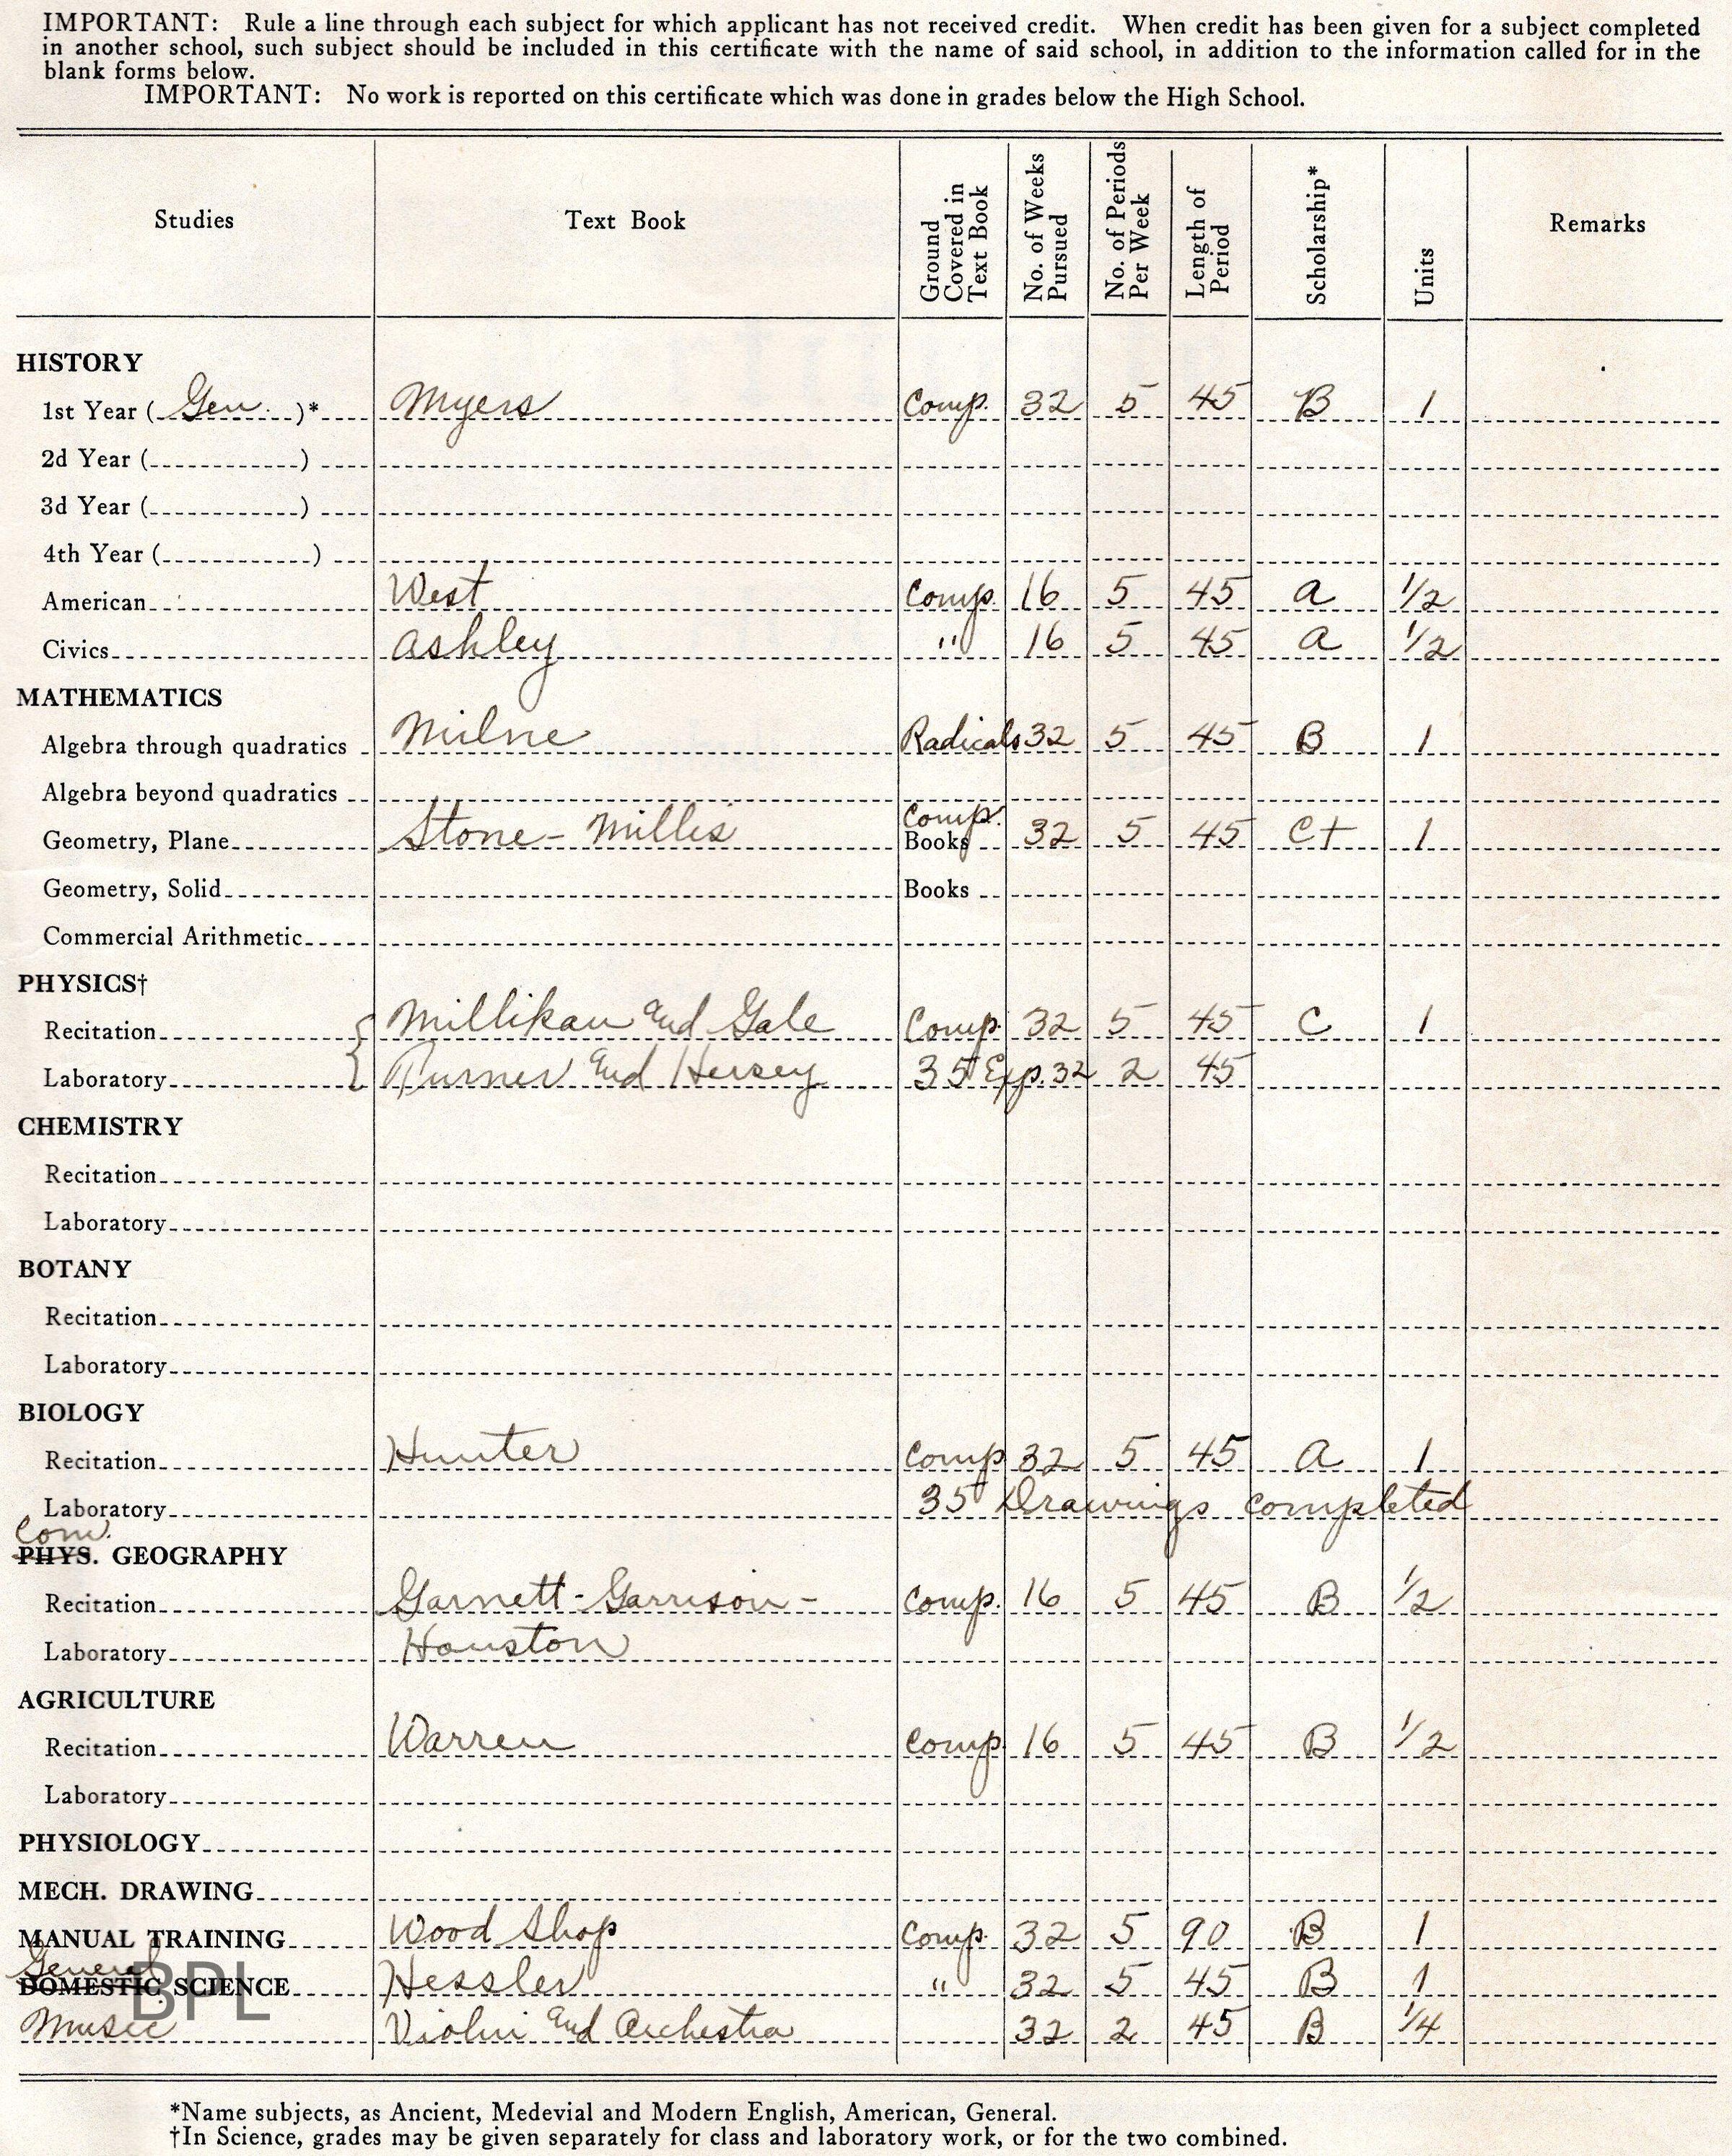 IMPORTANT: Rule a line through each subject for which applicant has not received credit. When credit has been given for a subject completed
in another school, such subject should be included in this certificate with the name of said school, in addition to the information called for in the
blank forms below.
IMPORTANT: No work is reported on this certificate which was done in grades below the High School.
Studies Text Book Ground Covered in Text Book No. of Weeks Pursued No. of Periods Per Week Length of Period Scholarship* Units Remarks
HISTORY
1st Year (Gen.)* Myers Comp. 32 5 45 B 1
2d Year ( )
3d Year ( )
4th Year ( )
American West Comp. 16 5 45 A 1/2
Civics Ashley " 16 5 45 A 1/2
MATHEMATICS
Algebra through quadratics Milne Radicals 32 5 45 B 1
Algebra beyond quadratics
Geometry, Plane Stone-Millis Comp. Books 32 5 45 C+ 1
Geometry, Solid Books
Commercial Arithmetic
PHYSICS†
Recitation Millikan and Gale Comp. 32 5 45 C 1
Laboratory Turner and Hersey 35 Exp. 32 2 45
CHEMISTRY
Recitation
Laboratory
BOTANY
Recitation
Laboratory
BIOLOGY
Recitation Hunter Comp 32 5 45 A 1
Laboratory 35 Drawings completed
Com.
PHYS. GEOGRAPHY
Recitation Garnett-Garrison- Comp. 16 5 45 B 1/2
Laboratory Houston
AGRICULTURE
Recitation Warren Comp 16 5 45 B 1/2
Laboratory
PHYSIOLOGY
MECH. DRAWING
MANUAL TRAINING Wood Shop Comp. 32 5 90 B 1
General
DOMESTIC SCIENCE Hessler " 32 5 45 B 1
BPL
Music Violin and Orchestra 32 2 45 B 1/4
*Name subjects, as Ancient, Medevial and Modern English, American, General.
†In Science, grades may be given separately for class and laboratory work, or for the two combined.